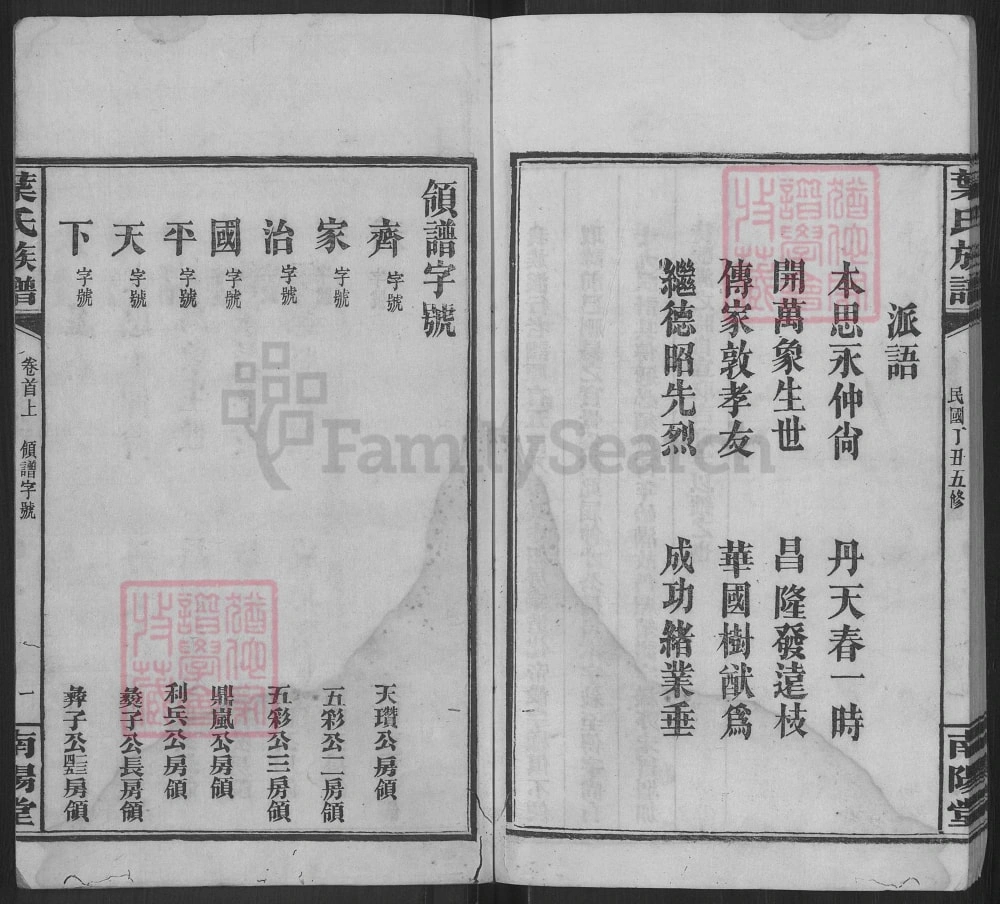 葉氏族譜
民國丁丑五修
南陽堂
派語
本思永仲尙 丹天春一時
開萬象生世 昌隆發遠枝
傳家敦孝友 華國樹猷爲
繼德昭先烈 成功緒業垂
領譜字號
齊字號 天瓚公房領
家字號 五彩公二房領
治字號 五彩公三房領
國字號 鼎嵐公房領
平字號 利兵公房領
天字號 子公長房領
下字號 彛子公房領
葉氏族譜
卷首上 領譜字號
一
南陽堂
FamilySearch